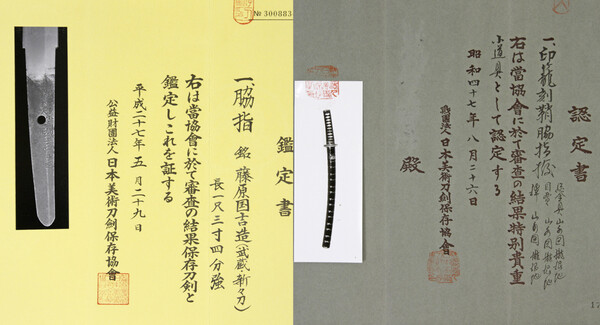 № 300883
鑑定書
一、脇指 銘 藤原国吉造(武蔵・新々刀)
長一尺三寸四分強
右は當協會に於て審査の結果保存刀剣と
鑑定しこれを証する
平成二十七年五月二十九日
公益財團法人 日本美術刀劍保存協會
認定書
一、印籠刻鞘脇指拵
右は當協會に於て審査の結果特別貴重
小道具として認定する
昭和四十七年八月二十六日
財團法人 日本美術刀劍保存協會
殿